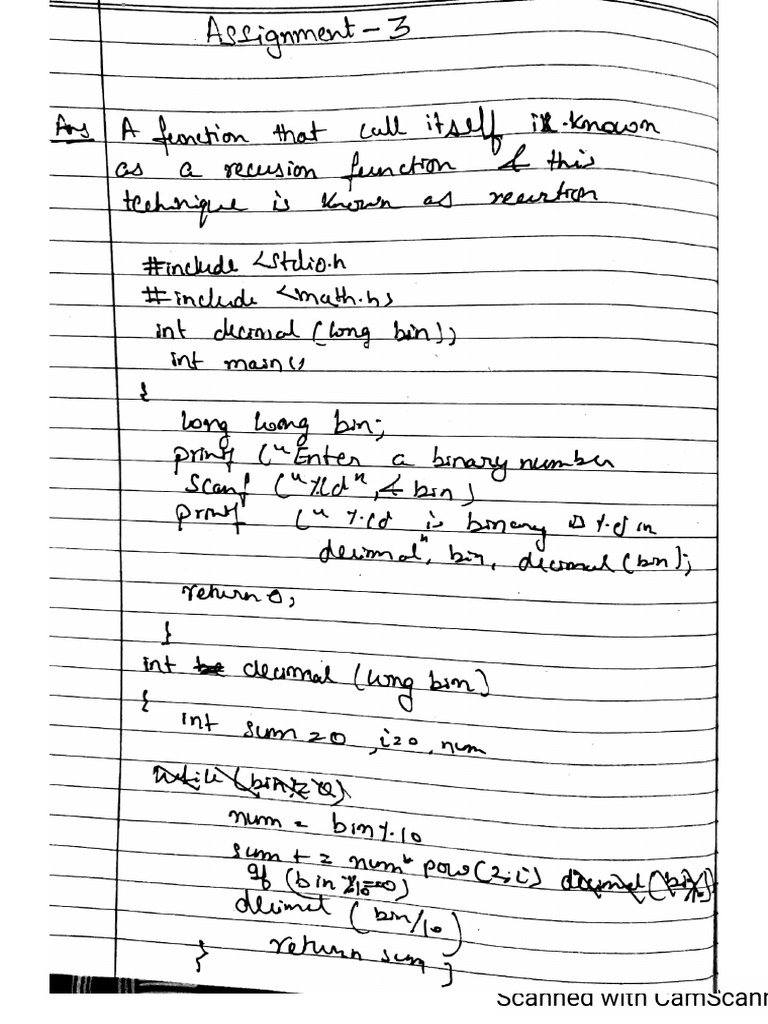 Assignment - 3
Ans A function that call itself is known
as a recusion function & this
technique is known as recurtion
#include <stdio.h
#include <math.h>
int decimal (long bin);
int main()
{
long long bin;
printf ("Enter a binary number
scanf ("%ld", & bin)
printf (" %ld is binary %d in
decimal", bin, decimal (bin);
return 0;
}
int decimal (long bin)
{
int sum = 0 , i=0, num
num = bin % 10
sum + = num * pow(2,i)
if (bin
decimal (bin/10)
return sum
}
Scanned with CamScann